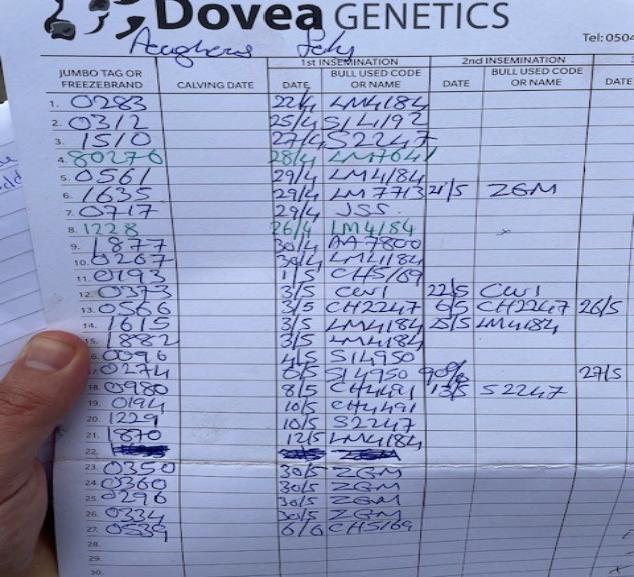 Dovea GENETICS
Tel: 0504
1st INSEMINATION 2nd INSEMINATION 3
JUMBO TAG OR FREEZEBRAND CALVING DATE DATE BULL USED CODE OR NAME DATE BULL USED CODE OR NAME DATE
1. 0283 22/4 LM4184
2. 0312 25/4 SI4192
3. 1510 27/4 S2247
4. 80276 28/4 LM7641
5. 0561 29/4 LM4184
6. 1635 29/4 LM7713 21/5 ZGM
7. 0717 29/4 JSS.
8. 1228 26/4 LM4184
9. 1877 30/4 AA7800
10. 0267 30/4 LM4184
11. 0193 1/5 CH5169
12. 0373 3/5 CWI 22/5 CWI
13. 0566 3/5 CH2247 6/5 CH2247 26/5
14. 1615 3/5 LM4184 25/5 LM4184
15. 1882 3/5 LM4184
16. 0096 4/5 SI4950
0274 6/5 SI4950 27/5
18. 0980 8/5 CH4491 13/5 S2247
19. 0194 10/5 CH4491
20. 1229 10/5 S2247
21. 1870 12/5 LM4184
22.
23. 0350 30/5 ZGM
24. 0360 30/5 ZGM
25. 0296 30/5 ZGM
26. 0234 30/5 ZGM
27. 0539 6/6 CH5169
28.
29.
30.